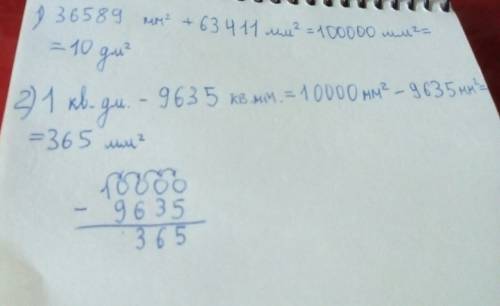 1) 36589 мм² + 63411 мм² = 100000 мм² =
= 10 дм²
2) 1 кв. дм. - 9635 кв. мм. = 10000 мм² - 9635 мм² =
= 365 мм²
10000
- 9635
365